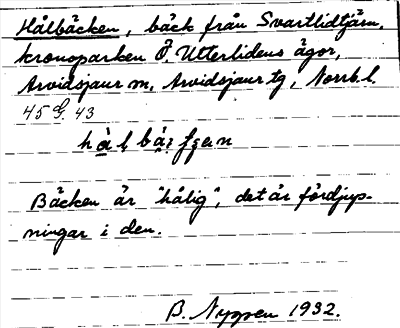 Hålbäcken, bäck från Svartlidtjärn,
kronoparken Ö. Utterlidens ägor,
Arvidsjaur sn, Arvidsjaur tg, Norrb. l.
45 G. 43
Bäcken är "hålig", det är fördjup-
ningar i den.
B. Nygren 1932.